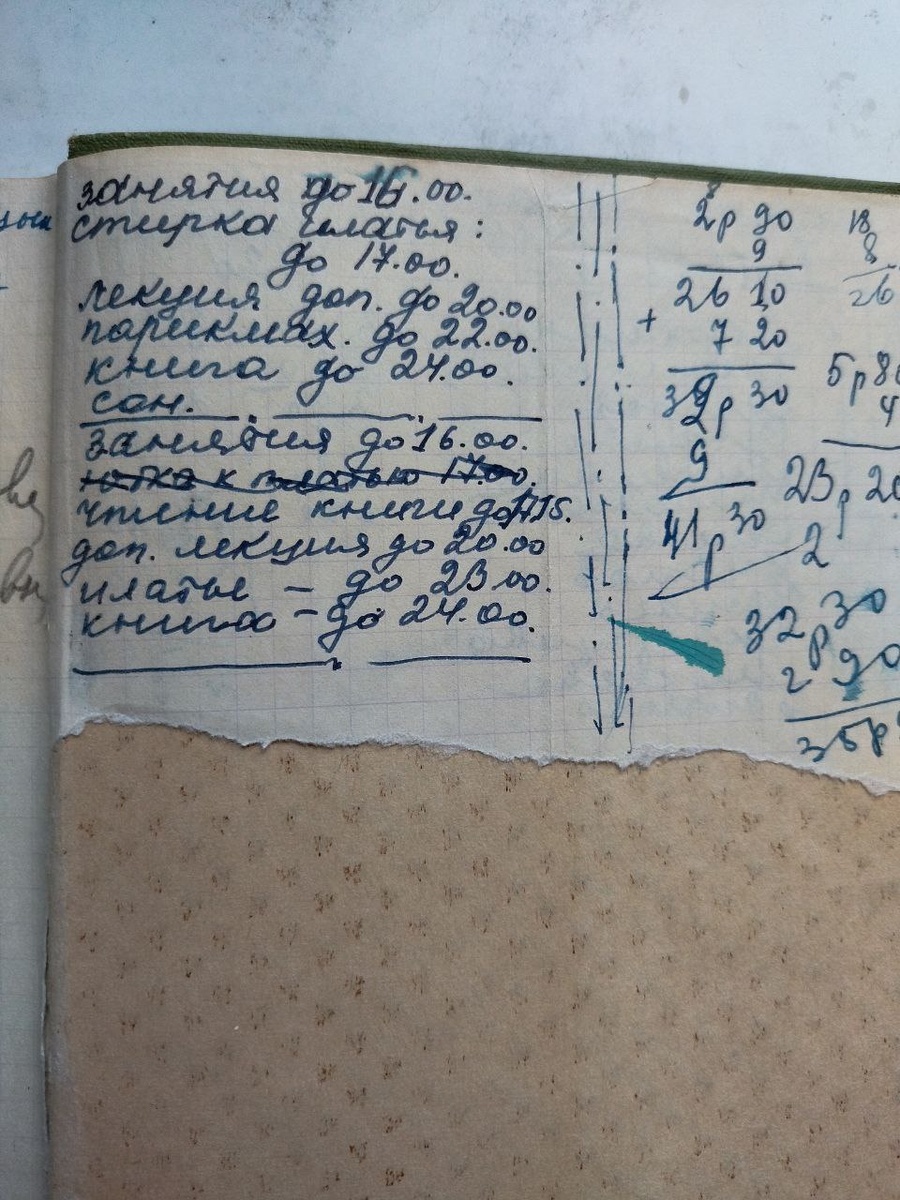 занятия до 16.00.
стирка платья:
до 17.00.
лекция доп. до 20.00
парикмах. до 22.00.
книга до 24.00.
сон.
занятия до 16.00.
к платью 17.00.
чтение книги до 17.15.
доп. лекция до 20.00
платье – до 23.00.
книга – до 24.00.
8
2р 90
9
26 10
+ 7 20
32р 30
9
41р 30
18
8
26
5р 80
4
23р 20
2
32р 30
2 90
35р